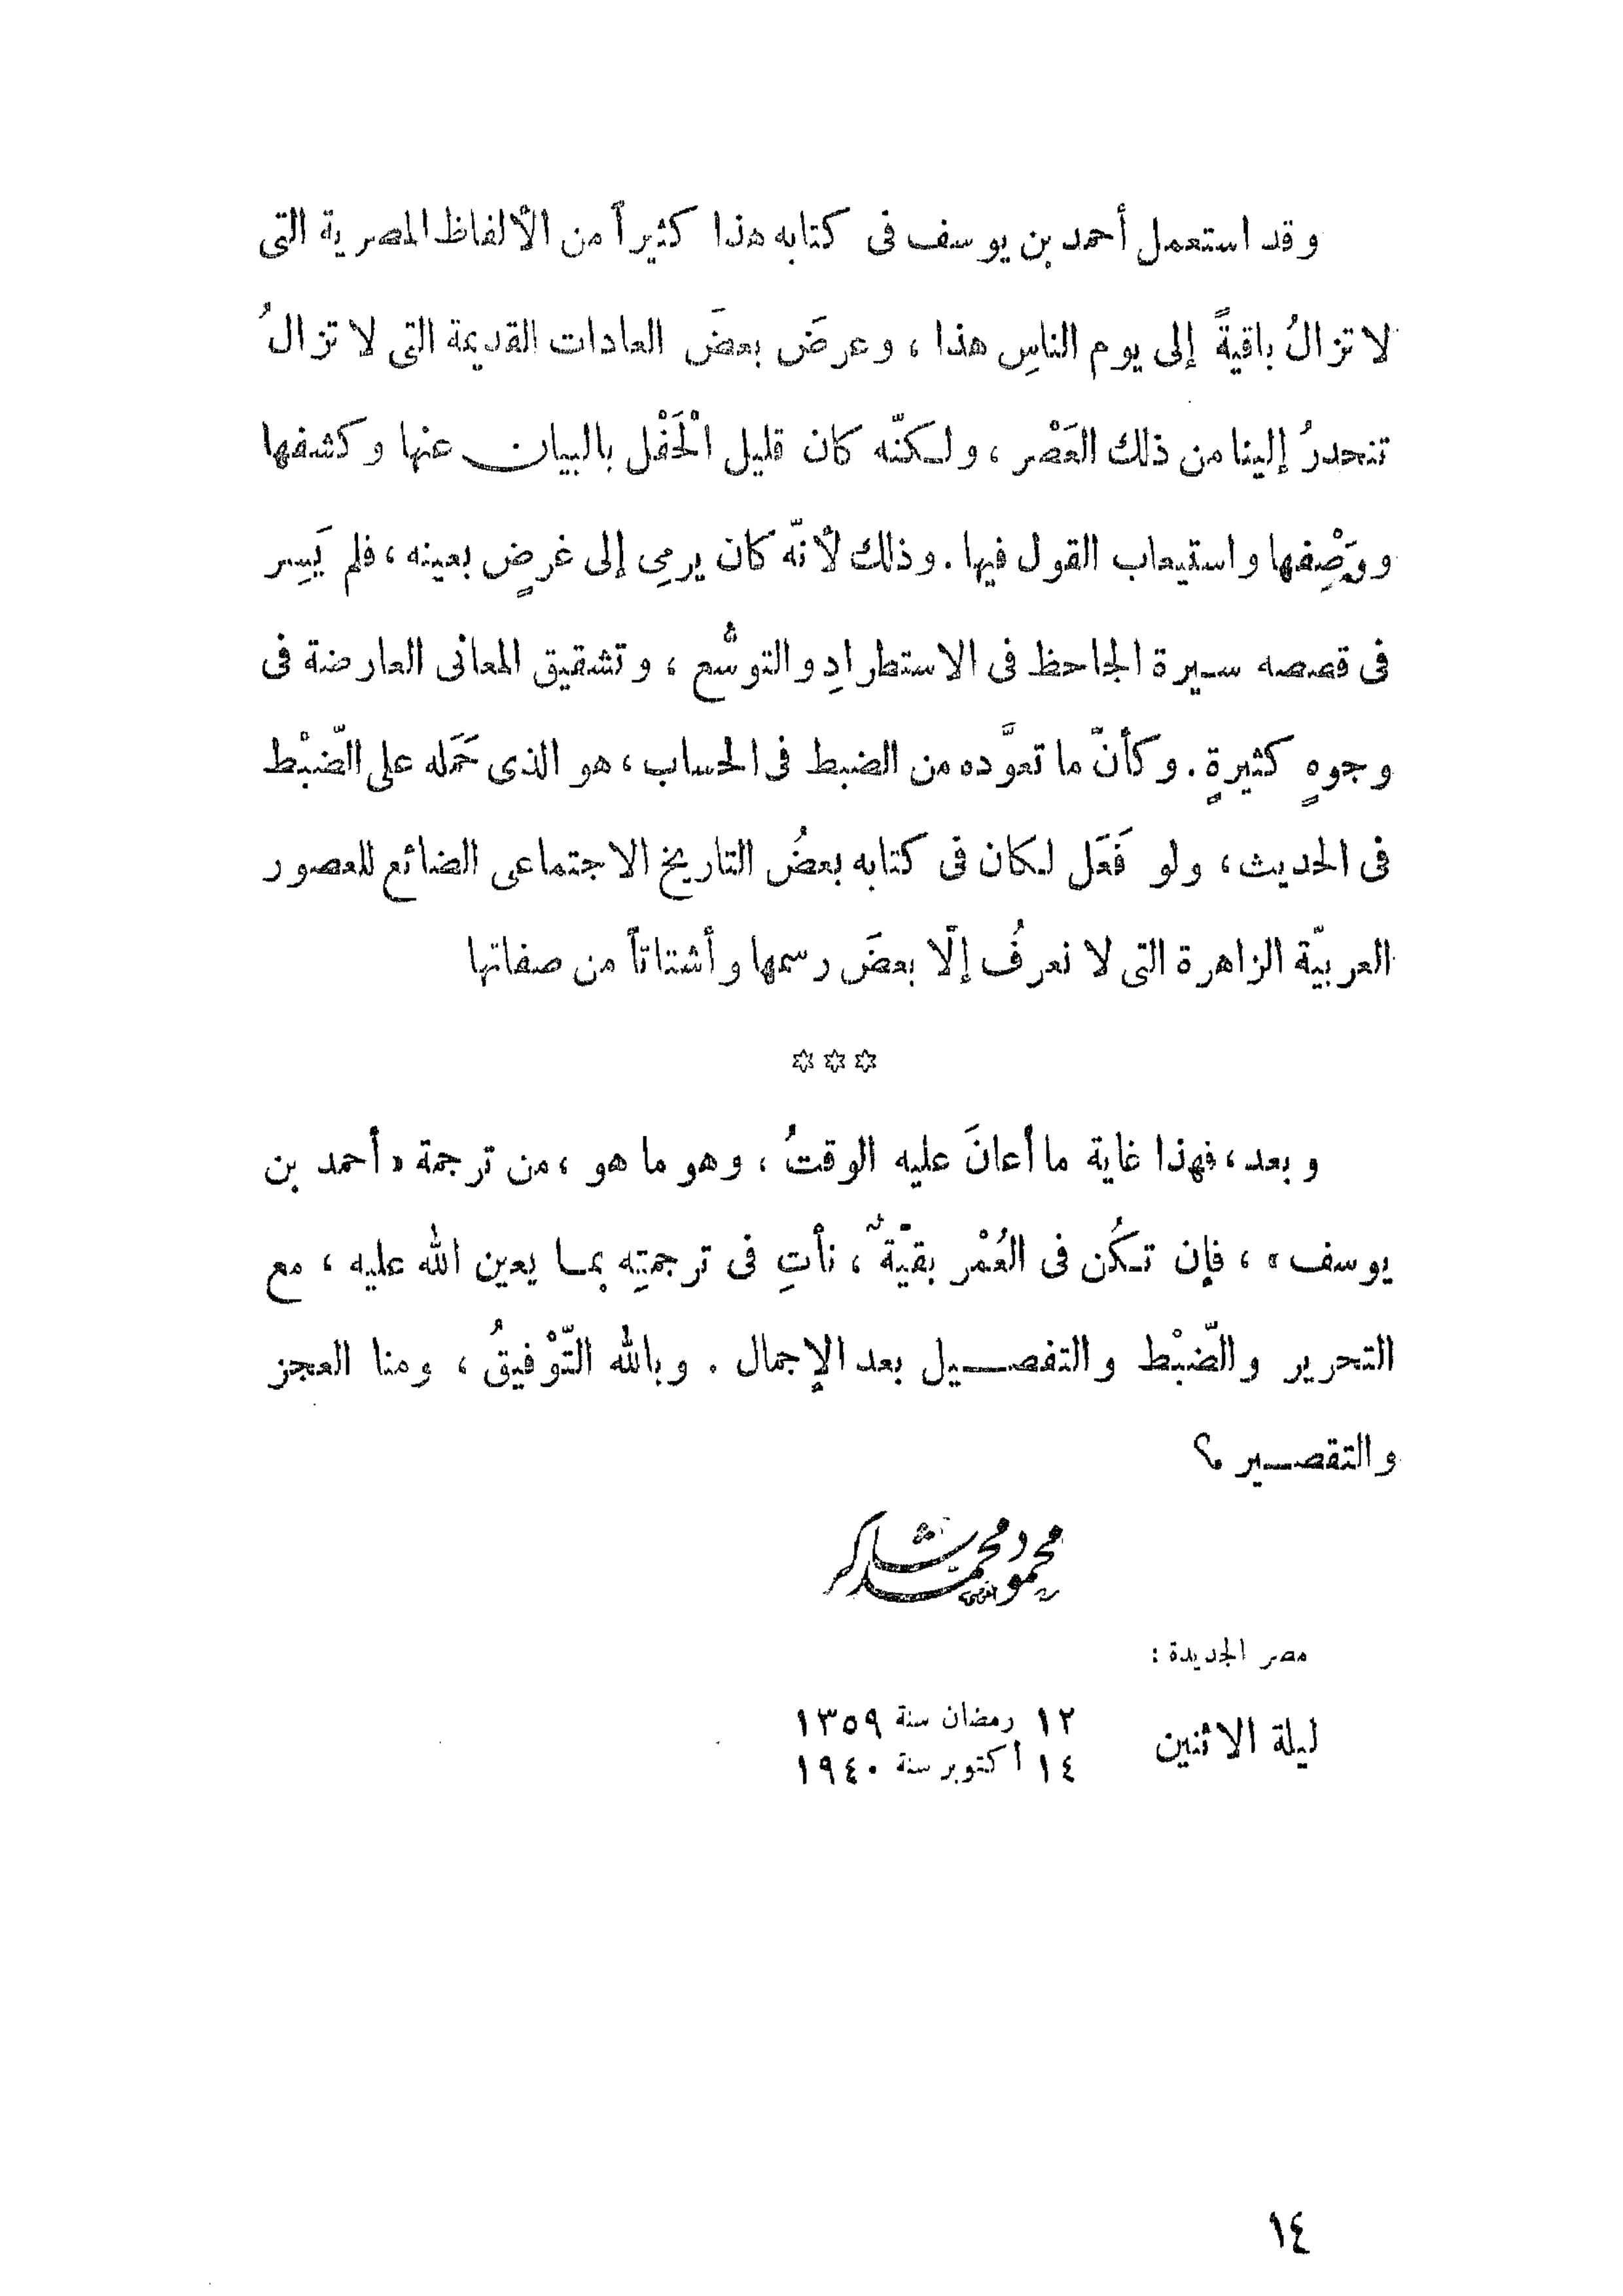 وقد استعمل أحمد بن يوسف فى كتابه هذا كثيراً من الألفاظ المصرية التى
لا تزالُ باقيةً إلى يوم الناسِ هذا ، وعرضَ بعضَ العادات القديمة التى لا تزالُ
تنحدرُ إلينا من ذلك العَصْر ، ولكنّه كان قليل الْحَفْل بالبيان عنها وكشفها
ووَصْفِها واستيعاب القول فيها . وذلك لأنّه كان يرمِى إلى غرضٍ بعينه ، فلم يَسِر
فى قصصه سيرة الجاحظ فى الاستطرادِ والتوسُّع ، وتشقيق المعانى العارضة فى
وجوهٍ كثيرةٍ . وكأنّ ما تعوَّده من الضبط فى الحساب ، هو الذى حَمَله على الضّبْط
فى الحديث ، ولو فَعَل لكان فى كتابه بعضُ التاريخ الاجتماعى الضائع للعصور
العربيّة الزاهرة التى لا نعرفُ إلّا بعضَ رسمها وأشتاتاً من صفاتها
***
وبعد ، فهذا غاية ما أعانَ عليه الوقتُ ، وهو ما هو ، من ترجمة « أحمد بن
يوسف » ، فإن تكُن فى العُمْر بقيّةٌ ، نأتِ فى ترجمتِه بما يعين الله عليه ، مع
التحرير والضّبْط والتفصيل بعد الإجمال . وبالله التّوْفيقُ ، ومنا العجز
والتقصير ؟
محمود محمد شاكر
مصر الجديدة :
ليلة الاثنين
١٢ رمضان سنة ١٣٥٩
١٤ أكتوبر سنة ١٩٤٠
١٤